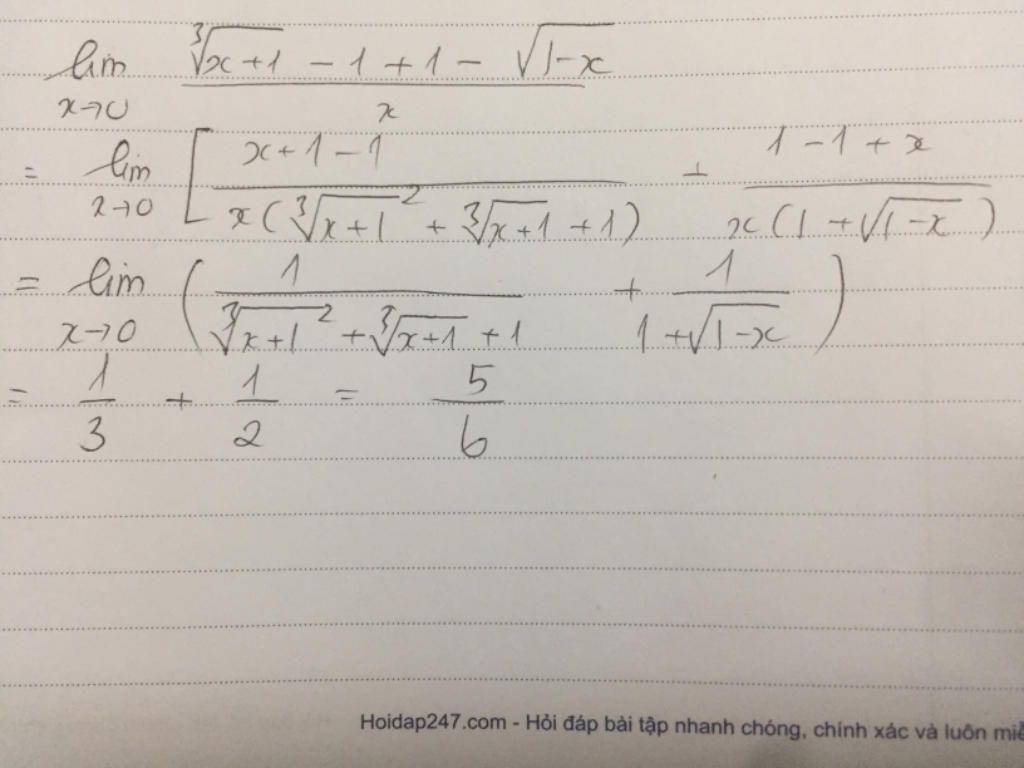 lim x→0 (∛(x+1) − 1 + 1 − √(1−x)) / x
= lim x→0 [ (x+1−1) / (x(∛(x+1)² + ∛(x+1) + 1)) + (1−1+x) / (x(1+√(1−x)))
= lim x→0 ( 1 / (∛(x+1)² + ∛(x+1) + 1) + 1 / (1+√(1−x)) )
= 1/3 + 1/2 = 5/6
Hoidap247.com - Hỏi đáp bài tập nhanh chóng, chính xác và luôn